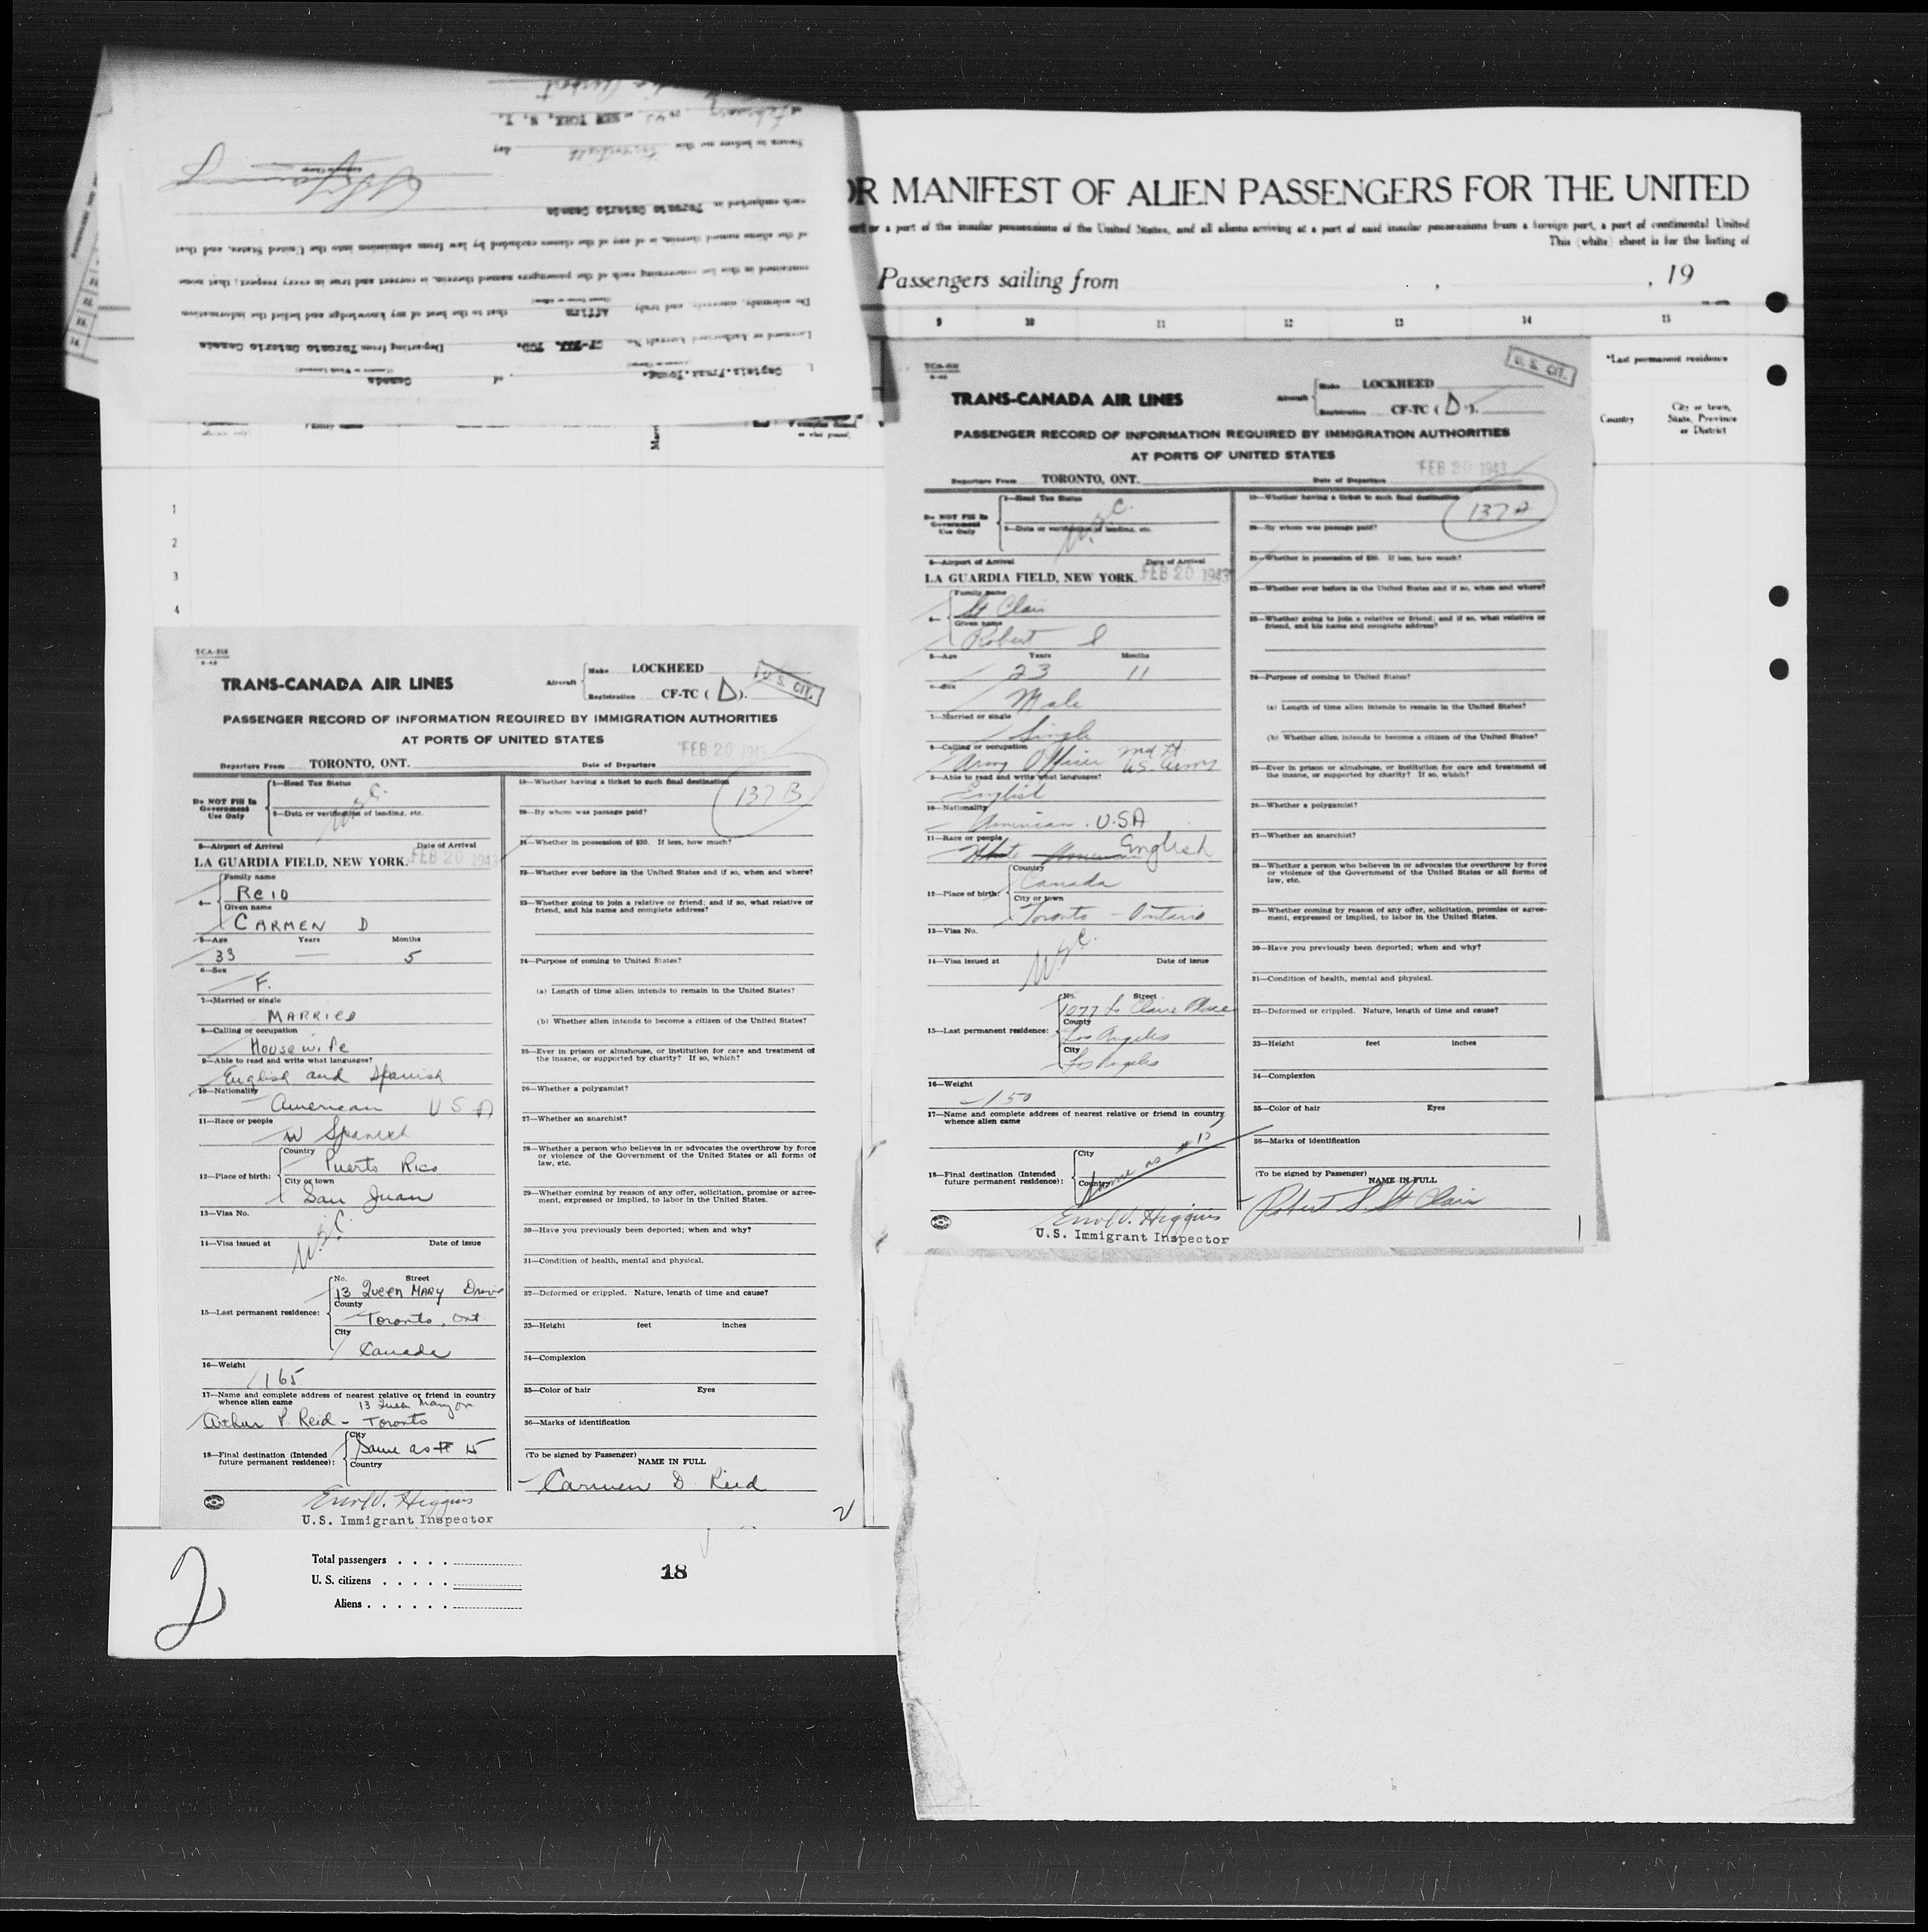 OR MANIFEST OF ALIEN PASSENGERS FOR THE UNITED
or a port of the insular possessions of the United States, and all aliens arriving at a port of said insular possessions from a foreign port, a port of continental United
This (white) sheet is for the listing of
Passengers sailing from , , 19
9 10 11 12 13 14 15
*Last permanent residence
Country
City or town, State, Province or District
Captain.Frank.Young. of Canada
Licensed or Authorized Aircraft No. CF- Departing from Toronto Ontario Canada
Do solemnly, sincerely, and truly Affirm that to the best of my knowledge and belief the information
contained in this list concerning each of the passengers named thereon, is correct and true in every respect; that none
of the aliens named thereon, is of any of the classes excluded by law from admission into the United States, and that
each embarked at Toronto Ontario Canada
Sworn to before me this day
at NEW YORK, N. Y.
1
2
3
4
TCA-
TRANS-CANADA AIR LINES
Aircraft
Make LOCKHEED
Registration CF-TC ( D ).
U. S. CIT.
PASSENGER RECORD OF INFORMATION REQUIRED BY IMMIGRATION AUTHORITIES
AT PORTS OF UNITED STATES
Departure From TORONTO, ONT.
Date of Departure FEB 20 1943
Do NOT Fill In Government Use Only
1—Head Tax Status
2—Date or verification of landing, etc.
U.S.C.
137 B
3—Airport of Arrival Date of Arrival
LA GUARDIA FIELD, NEW YORK. FEB 20 1943
4—
Family name
Reid
Given name
CARMEN D
5—Age Years Months
33 — 5
6—Sex
F.
7—Married or single
MARRIED
8—Calling or occupation
Housewife
9—Able to read and write what languages?
English and Spanish
10—Nationality
American U S A
11—Race or people
W Spanish
12—Place of birth:
Country
Puerto Rico
City or town
San Juan
13—Visa No.
U.S.C.
14—Visa issued at Date of issue
15—Last permanent residence:
No. Street
13 Queen MARY Drive
County
Toronto, Ont
City
Canada
16—Weight
165
17—Name and complete address of nearest relative or friend in country
whence alien came
13 Queen Mary Dr
Arthur P. Reid - Toronto
18—Final destination (Intended
future permanent residence):
City
Same as # 15
Country
Errol V. Higgins
U.S. Immigrant Inspector
19—Whether having a ticket to such final destination
20—By whom was passage paid?
21—Whether in possession of $50. If less, how much?
22—Whether ever before in the United States and if so, when and where?
23—Whether going to join a relative or friend; and if so, what relative or
friend, and his name and complete address?
24—Purpose of coming to United States?
(a) Length of time alien intends to remain in the United States?
(b) Whether alien intends to become a citizen of the United States?
25—Ever in prison or almshouse, or institution for care and treatment of
the insane, or supported by charity? If so, which?
26—Whether a polygamist?
27—Whether an anarchist?
28—Whether a person who believes in or advocates the overthrow by force
or violence of the Government of the United States or all forms of
law, etc.
29—Whether coming by reason of any offer, solicitation, promise or agree-
ment, expressed or implied, to labor in the United States.
30—Have you previously been deported; when and why?
31—Condition of health, mental and physical.
32—Deformed or crippled. Nature, length of time and cause?
33—Height feet inches
34—Complexion
35—Color of hair Eyes
36—Marks of identification
(To be signed by Passenger)
NAME IN FULL
Carmen D Reid
2
TRANS-CANADA AIR LINES
Aircraft
Make LOCKHEED
Registration CF-TC ( D ).
U. S. CIT.
PASSENGER RECORD OF INFORMATION REQUIRED BY IMMIGRATION AUTHORITIES
AT PORTS OF UNITED STATES
Departure From TORONTO, ONT.
Date of Departure FEB 20 1943
Do NOT Fill In Government Use Only
1—Head Tax Status
2—Date or verification of landing, etc.
U.S.C.
137 A
3—Airport of Arrival Date of Arrival
LA GUARDIA FIELD, NEW YORK. FEB 20 1943
4—
Family name
St Clair
Given name
Robert S
5—Age Years Months
23 11
6—Sex
Male
7—Married or single
Single
8—Calling or occupation
Army Officer U.S. Army
9—Able to read and write what languages?
English
10—Nationality
American . U.S.A
11—Race or people
White American English
12—Place of birth:
Country
Canada
City or town
Toronto - Ontario
13—Visa No.
U.S.C.
14—Visa issued at Date of issue
15—Last permanent residence:
No. Street
1077 Le Claire Place
County
Los Angeles
City
Los Angeles
16—Weight
150
17—Name and complete address of nearest relative or friend in country
whence alien came
18—Final destination (Intended
future permanent residence):
City
Country
Same as # 15
Errol V. Higgins
U.S. Immigrant Inspector
19—Whether having a ticket to such final destination
20—By whom was passage paid?
21—Whether in possession of $50. If less, how much?
22—Whether ever before in the United States and if so, when and where?
23—Whether going to join a relative or friend; and if so, what relative or
friend, and his name and complete address?
24—Purpose of coming to United States?
(a) Length of time alien intends to remain in the United States?
(b) Whether alien intends to become a citizen of the United States?
25—Ever in prison or almshouse, or institution for care and treatment of
the insane, or supported by charity? If so, which?
26—Whether a polygamist?
27—Whether an anarchist?
28—Whether a person who believes in or advocates the overthrow by force
or violence of the Government of the United States or all forms of
law, etc.
29—Whether coming by reason of any offer, solicitation, promise or agree-
ment, expressed or implied, to labor in the United States.
30—Have you previously been deported; when and why?
31—Condition of health, mental and physical.
32—Deformed or crippled. Nature, length of time and cause?
33—Height feet inches
34—Complexion
35—Color of hair Eyes
36—Marks of identification
(To be signed by Passenger)
NAME IN FULL
Robert S. St Clair
1
2
Total passengers . . . .
U. S. citizens . . . . .
Aliens . . . . . .
18